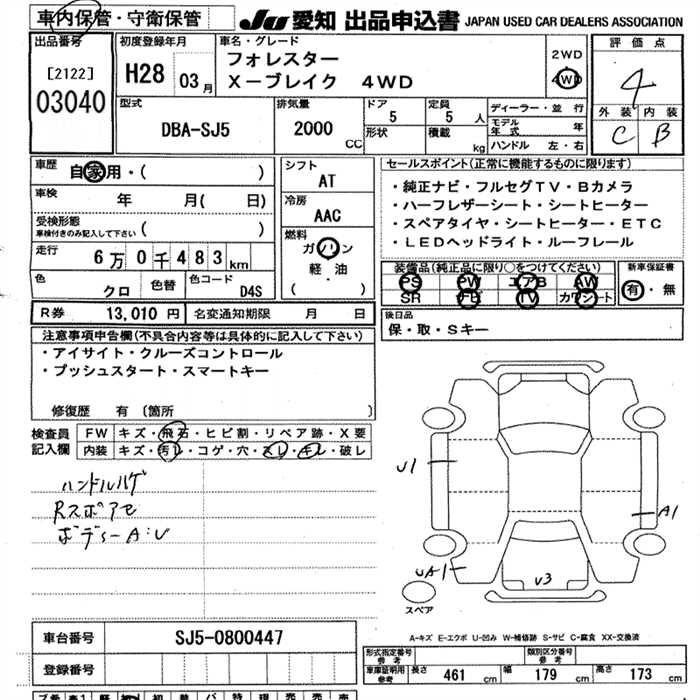 車内保管・守衛保管 JU 愛知 出品申込書 JAPAN USED CAR DEALERS ASSOCIATION
出品番号 [2122] 03040
初度登録年月 H28 03月
車名・グレード フォレスター X−ブレイク 4WD
2WD 4WD
評価点 4
外装 内装 C B
型式 DBA-SJ5
排気量 2000 CC
ドア 5 形状
定員 5人 積載 kg
ディーラー・並行
モデル年式 年
ハンドル 左・右
車歴 自家用・( )
車検 年 月( 日)
受検形態 車検付きのみ記入して下さい ( )
走行 6万0千483km
色 クロ 色替 色コード D4S
シフト AT
冷房 AAC
燃料 ガソリン 軽・油 ( )
セールスポイント(正常に機能するものに限ります)
・純正ナビ・フルセグTV・Bカメラ
・ハーフレザーシート・シートヒーター
・スペアタイヤ・シートヒーター・ETC
・LEDヘッドライト・ルーフレール
装備品(純正品に限り○をつけてください)
PS PW エアB AW
SR ナビ TV カワシート
新車保証書 有・無
R券 13,010円 名変通知期限 月 日
後日品
保・取・Sキー
注意事項申告欄(不具合内容等は具体的に記入して下さい)
・アイサイト・クルーズコントロール
・プッシュスタート・スマートキー
修復歴 有〔箇所 〕
検査員記入欄
FW キズ・飛石・ヒビ割・リペア跡・X要
内装 キズ・汚レ・コゲ・穴・スレ・キレ・破レ
ハンドルハゲ
Rスポアセ
ボディーA・U
U1
A1
UA1
U3
スペア
A-キズ E-エクボ U-凹み W-補修跡 S-サビ C-腐食 XX-交換済
車台番号 SJ5-0800447
登録番号
形式指定番号 参考
類別区分番号 参考
車庫証明用 参考 長さ 461 cm 幅 179 cm 高さ 173 cm